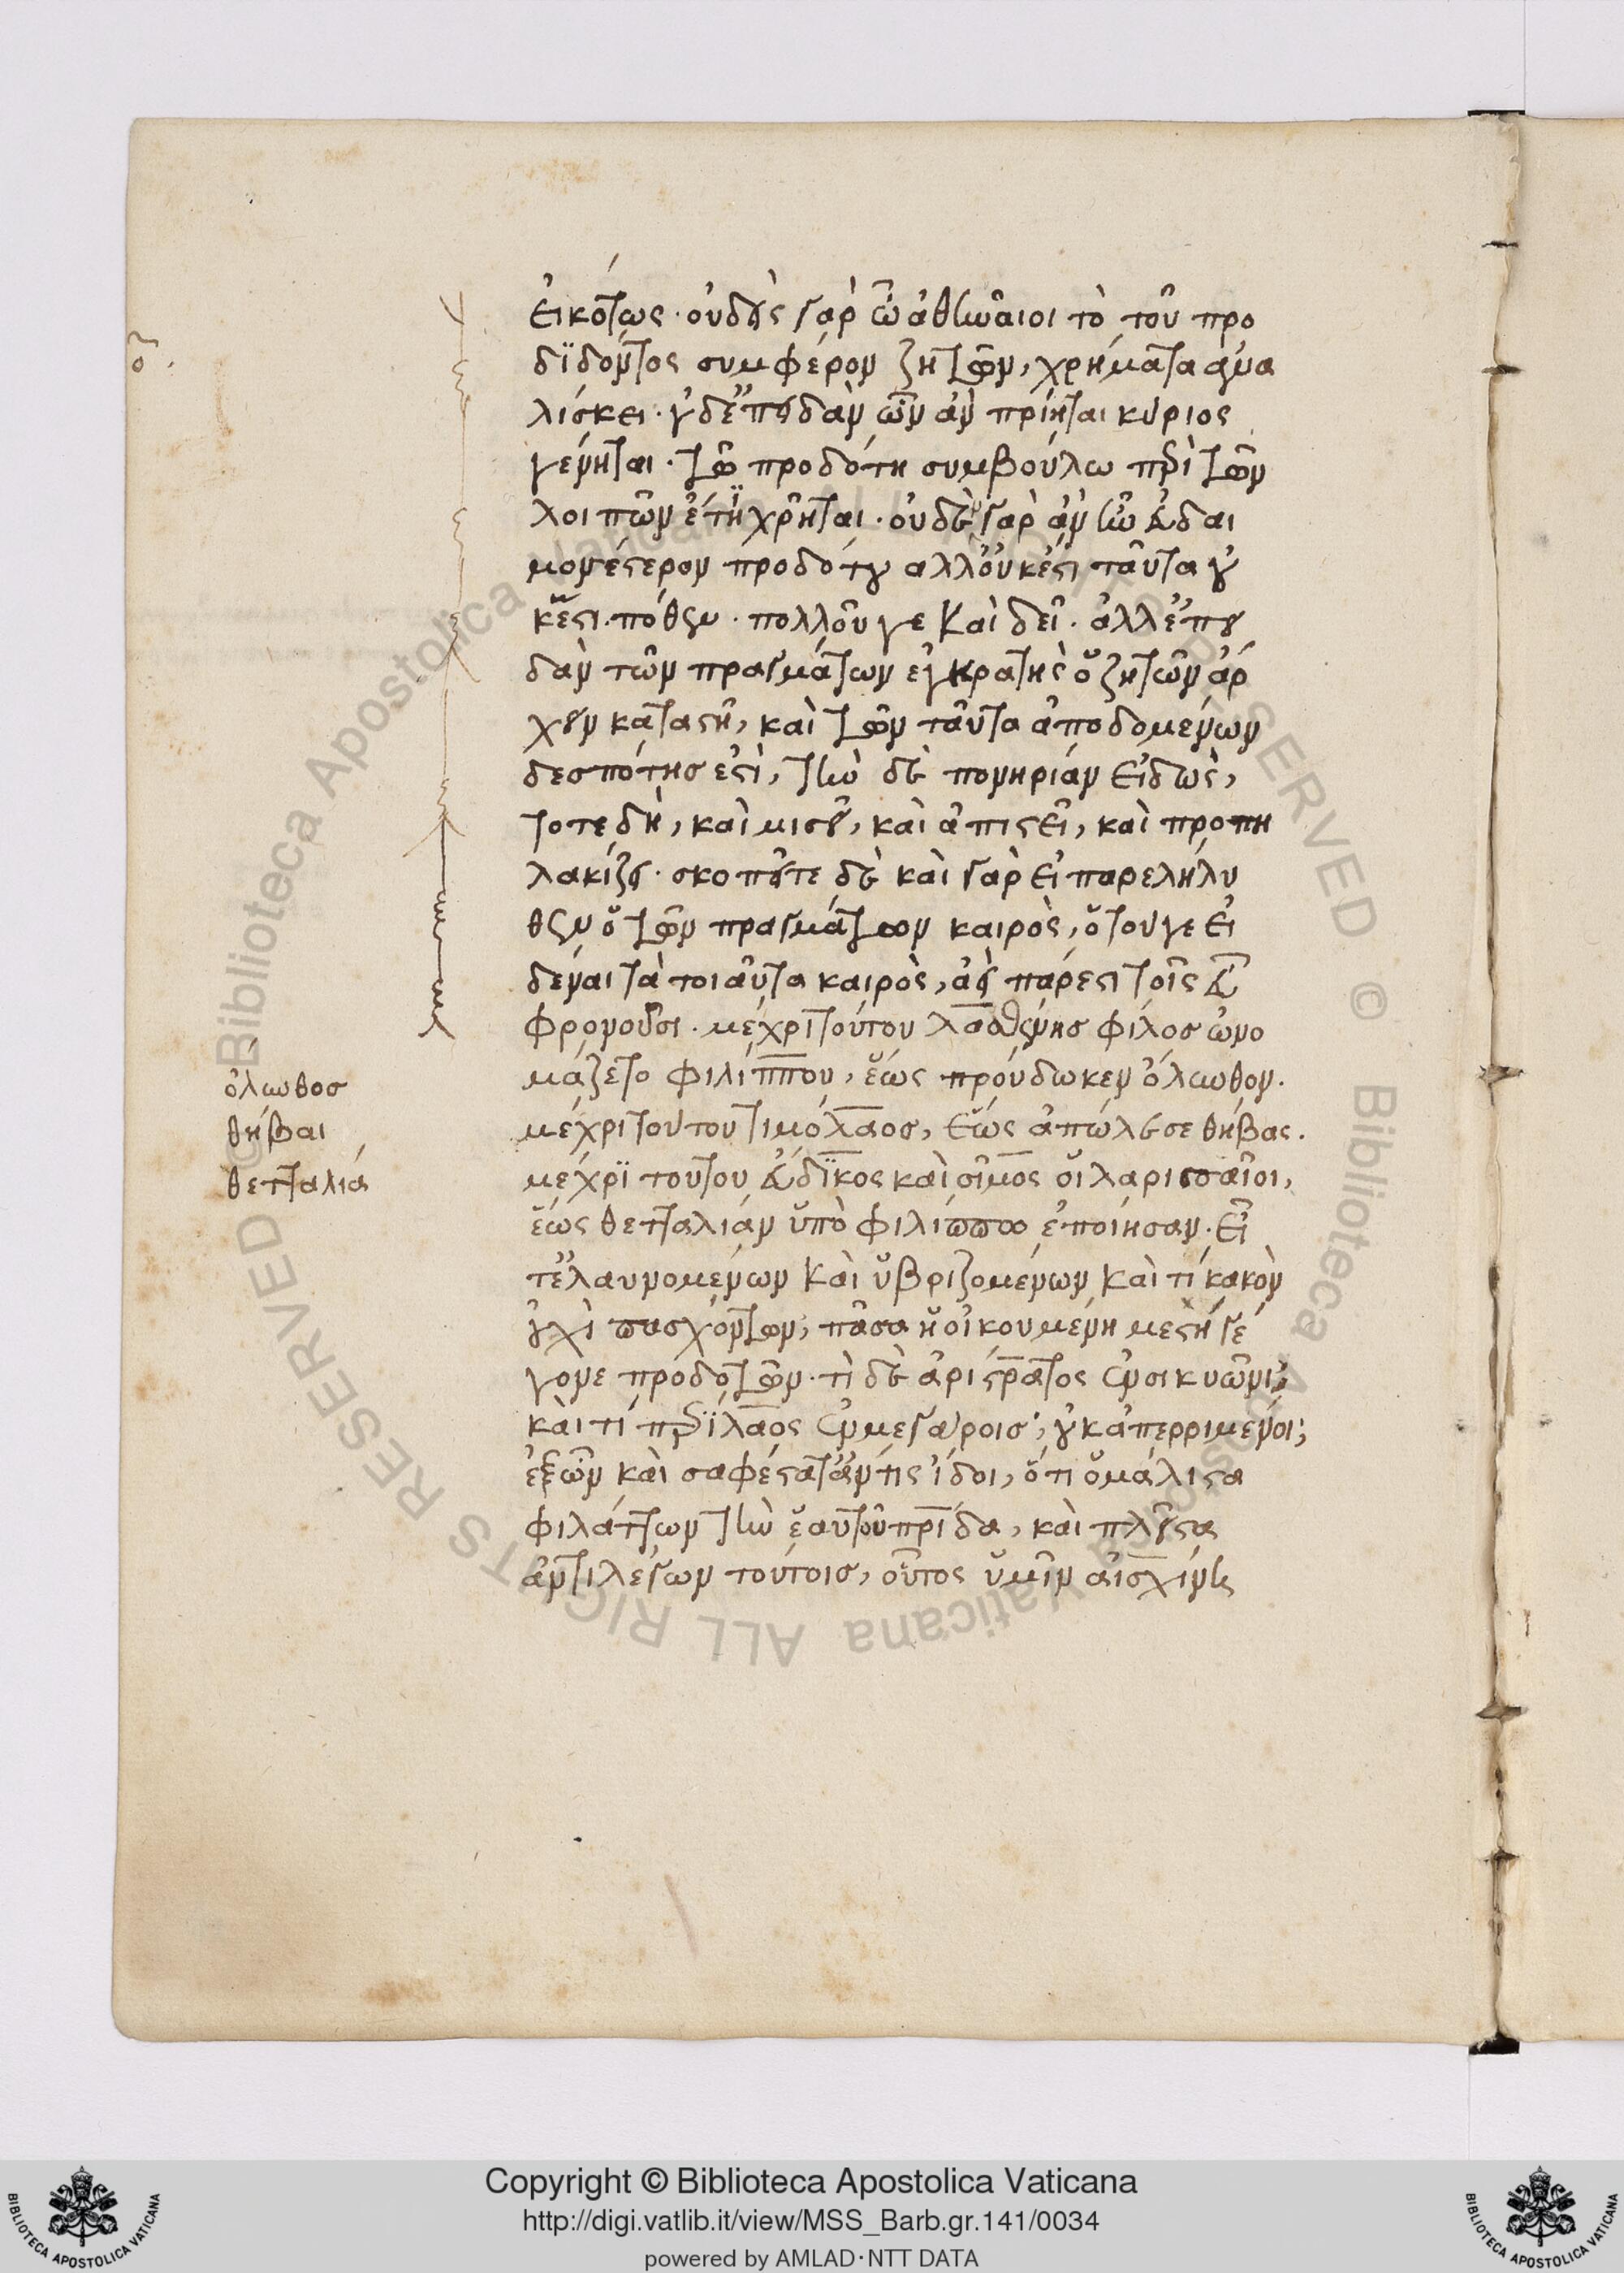 εἰκότως· οὐδεὶς γὰρ ὦ ἀθηναῖοι τὸ τοῦ προ
διδόντος συμφέρον ζητῶν, χρήματα ἀνα
λίσκει· οὐδ' ἐπειδὰν ὧν ἂν πρίηται κύριος
γένηται· τῶ προδότη συμβούλω περὶ τῶν
λοιπῶν ἔτι χρῆται· οὐδὲν γὰρ ἂν ἦν εὐδαι
μονέστερον προδότου ἀλλ' οὐκ ἔστι ταῦτα οὐ
κ ἔστι· πόθεν· πολλοῦ γε καὶ δεῖ· ἀλλ' ἐπει
δὰν τῶν πραγμάτων ἐγκρατὴς ὁ ζητῶν ἄρ
χειν καταστῆ, καὶ τῶν ταῦτα ἀποδομένων
δεσπότης ἐστὶ, τὴν δὲ πονηρίαν εἰδὼς,
τότε δὴ, καὶ μισεῖ, καὶ ἀπιστεῖ, καὶ προπη
λακίζει· σκοπεῖτε δὲ καὶ γὰρ εἰ παρελήλυ
θεν ὁ τῶν πραγμάτων καιρὸς, ὁ τοῦ γε εἰ
δέναι τὰ τοιαῦτα καιρὸς, ἀεὶ πάρεστι τοῖς εὖ
φρονοῦσι· μέχρι τούτου λασθένης φίλος ὠνο
μάζετο φιλίππου, ἕως προύδωκεν ὄλυνθον.
μέχρι τούτου τιμόλαος, ἕως ἀπώλεσε θήβας.
μέχρι τούτου εὔδικος καὶ σῖμος οἱ λαρισσαῖοι,
ἕως θετταλίαν ὑπὸ φιλίππω ἐποίησαν· εἶ
τ' ἐλαυνομένων καὶ ὑβριζομένων καὶ τί κακὸν
οὐχὶ πασχόντων, πᾶσα ἡ οἰκουμένη μεστὴ γέ
γονε προδοτῶν· τί δὲ ἀρίστρατος ἐν σικυῶνι;
καὶ τί περίλαος ἐν μεγάροις; οὐκ ἀπερριμένοι;
ἐξ ὧν καὶ σαφέστατ' ἄν τις ἴδοι, ὅτι ὁ μάλιστα
φυλάττων τὴν ἑαυτοῦ πρίδα, καὶ πλεῖστα
ἀντιλέγων τούτοις, οὗτος ὑμῖν αἰσχίνη
ὄλυνθος
θήβαι
θετταλία
Copyright © Biblioteca Apostolica Vaticana
http://digi.vatlib.it/view/MSS_Barb.gr.141/0034
powered by AMLAD·NTT DATA
BIBLIOTECA APOSTOLICA VATICANA
BIBLIOTECA APOSTOLICA VATICANA
© Biblioteca Apostolica Vaticana ALL RIGHTS RESERVED
© Biblioteca Apostolica Vaticana ALL RIGHTS RESERVED